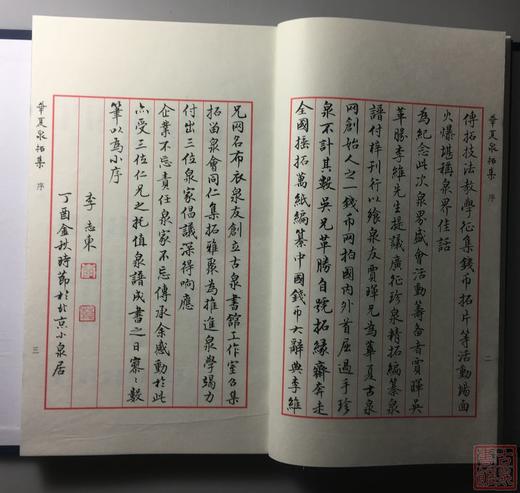 華夏泉拓集 序
二
傳拓技法教學征集錢幣拓片等活動場面
火爆堪稱泉界佳話
為紀念此次泉界盛會活動籌备者賈暉吴
革勝李維先生提議廣征珍泉精拓編纂泉
譜付梓刊行以飨泉友賈暉兄為華夏古泉
网創始人之一錢币网拍國内外首屈过手珍
泉不计其數吴兄革勝自號拓缘齋奔走
全國搖拓萬紙編纂中國錢幣大辭典李維
兄网名布衣泉友創立古泉書館工作室乃集
拓苗泉會同仁集拓雅聚為推進泉學竭力
付出三位泉家倡議深得响應
企業不忘責任泉家不忘傳承余感動於此
亦受三位仁兄之托值泉譜成書之日寥寥數
筆以為小序
李志東
丁酉金秋時節於北京小泉居
華夏泉拓集 序
三